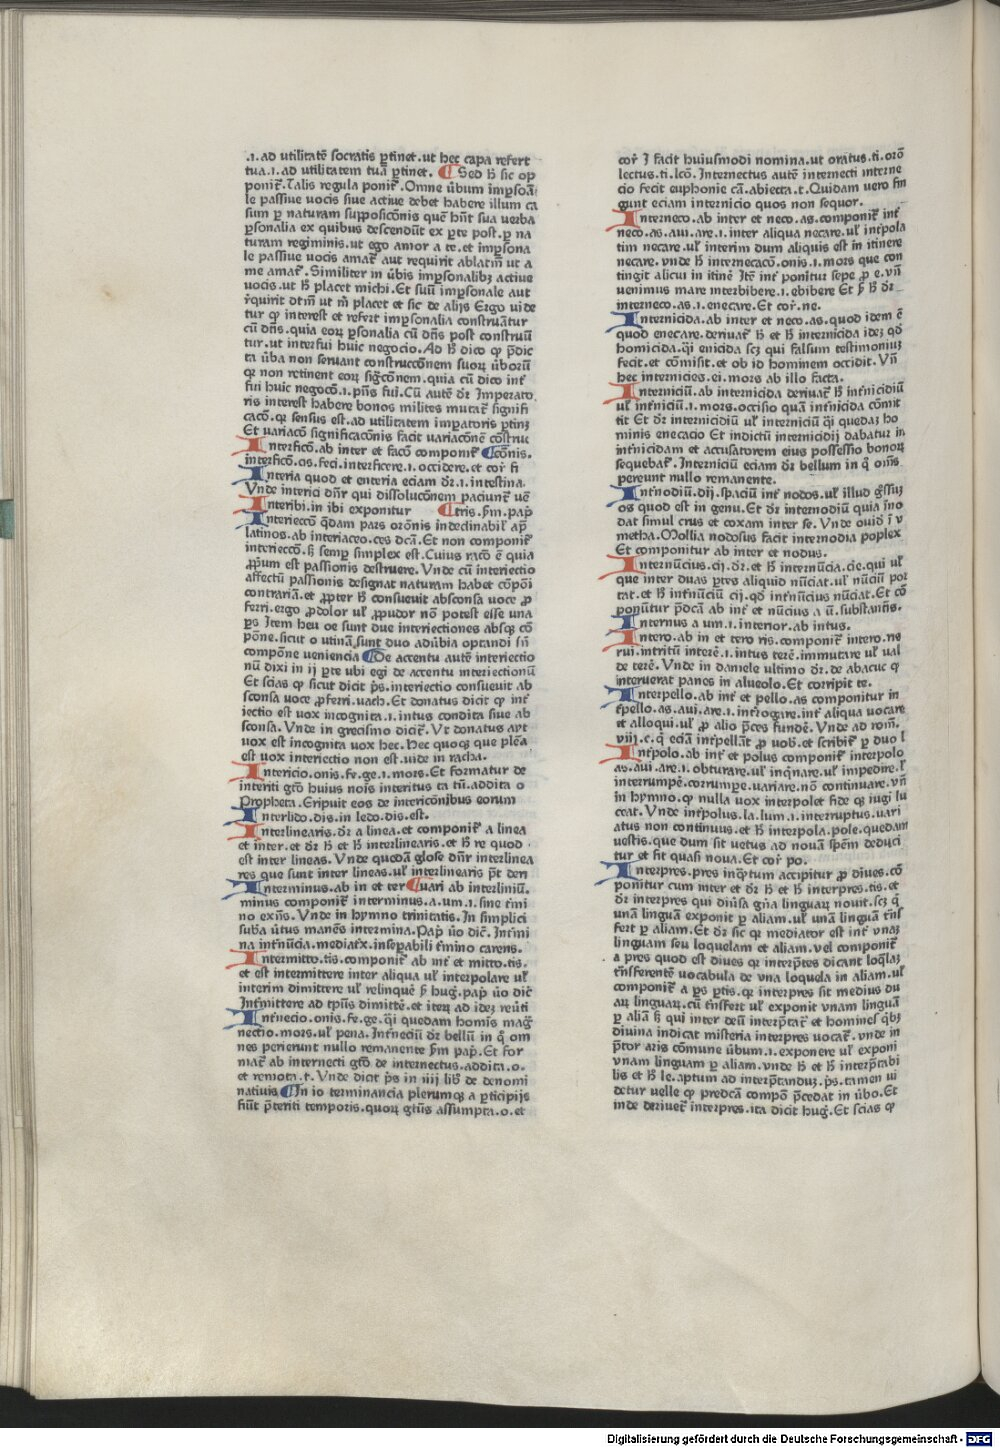 .i. ad utilitatē socratis ꝑtinet. ut hec capa refert
tua .i. ad utilitatem tuā ꝑtinet. Sed ħ sic op
ponit᷑. Talis regula ponit᷑. Omne ūbum imꝑsoā
le passiue uocis siue actiue debet habere illum ca
sum ꝑ naturam suꝑposicōnis quē hn̄t sua uerba
ꝑsonalia ex quibus descendūt ex ꝑte post. ꝑ na
turam regiminis. ut ego amor a te. et imꝑsona
le passiue uocis amat᷑ aut requirit ablatiū ut a
me amat᷑. Similiter in ūbis imꝑsonalibꝫ actiue
uocis. ut ħ placet michi. Et suū imꝑsonale aut
r̄quirit dtm̄ ut m̄ placet et sic de alijs Ergo uide
tur ꝙ interest et refert imꝑsonalia construātur
cū dn̄s. quia eoꝝ ꝑsonalia cū dn̄s post construū
tur. ut interfui huic negocio. Ad ħ dico ꝙ p̄dic
ta ūba non seruant construccōnem suoꝝ ūboꝝ
qꝛ non retinent eoꝝ sig̅cōnem. quia cū dico int᷑
fui huic negocō .i. pn̄s fui. Cū autē dr̄ Imperato
ris interest habere bonos milites mutat᷑ signifi
cacō. qꝛ sensus est. ad utilitatem imꝑatoris ꝑtinꝫ
Et uariacō significacōnis facit uariacōnē cōstruc
Interficō. ab inter et facō componit᷑ cōnis.
interficō. as. feci. interficere .i. occidere. et cor̄ fi
Interia quod et enteria eciam dr̄ .i. intestina.
Vnde interici dn̄r qui dissolucōnem paciunt᷑ uē
Interibi. in ibi exponitur tris. ẜm. pap̄
Interieccō q̄dam pars orōnis indeclinabil᷑ ap̄
latinos. ab interiaceo. ces dc̄a. Et non componit᷑
interieccō. ẜ semꝑ simplex est. Cuius racō ē quia
ꝓpum est passionis destruere. Vnde cū interiectio
affectū passionis designat naturam habet cōpōi
contrariā. et ꝓpter ħ consueuit absconsa uoce ꝓ
ferri. ergo ꝓ dolor ul᷑ ꝓ pudor nō potest esse una
ꝑs Item heu oe sunt due interiectiones absqꝫ cō
pōne. sicut o utinā sunt duo adūbia optandi sn̄
compōne ueniencia De accentu autē interiectio
nū dixi in ij ꝑte ubi egi de accentu interiectionū
Et scias ꝙ sicut dicit p̄s. interiectio consueuit ab
sconsa uoce ꝓferri. uach. Et donatus dicit ꝙ int᷑
iectio est uox incognita .i. intus condita siue ab
sconsa. Vnde in grecismo dicit᷑. Vt donatus ayt
uox est incognita uox hec. Hec quoqꝫ que plēa
est uox interiectio non est. uide in racha.
Intericio. onis. fe. ge .i. mors. Et formatur de
interiti gtō huius nois interitus ta tū. addita o
Propheta. Eripuit eos de intericōnibus eorum
Interlido. dis. in ledo. dis. est.
Interlinearis. dr̄ a linea. et componit᷑ a linea
et inter. et dr̄ ħ et ħ interlinearis. et ħ re quod
est inter lineas. Vnde quedā glose dn̄r interlinea
res que sunt inter lineas. ul᷑ interlinearis p̄t deri
Interminus. ab in et ter uari ab interliniū.
minus componit᷑ interminus. a. um .i. sine t᷑mi
no exn̄s. Vnde in hymno trinitatis. In simplici
suba ūtus manēs intermina. Pap̄ ūo dic̄. Int᷑mi
na int᷑nūcia. mediat᷑x. inseꝑabili t᷑mino carens.
Intermitto. tis. componit᷑ ab int᷑ et mitto. tis.
et est intermittere inter aliqua ul᷑ interpolare ul᷑
interim dimittere ul᷑ relinquē ẜ hug. pap̄ ūo dic̄
Int᷑mittere ad tp̄us dimittē. et iteꝝ ad ideꝫ reūti
Int᷑necio. onis. fe. ge. q̄i quedam homīs mag᷑
nectio. mors. ul᷑ pena. Int᷑neciū dr̄ bellū in q̊ om
nes perierunt nullo remanente ẜm pap̄. Et for
mat᷑ ab internecti gtō de internectus. addita .o.
et remota .t. Vnde dicit p̄s in iiij libꝰ de denomi
natiuis In io terminancia plerumqꝫ a ꝑticipijs
fiūt p̄teriti temporis. quoꝝ gtiūs assumpta .o. et
cor̄ I facit huiusmodi nomina. ut oratus. ti. orō
lectus. ti. lcō. Internectus autē internecti interne
cio fecit euphonie cā. abiecta .t. Quidam uero fin
gunt eciam internicio quos non sequor.
Interneco. ab inter et neco. as. componit᷑ int᷑
neco. as. aui. are .i. inter aliqua necare. ul᷑ int᷑pola
tim necare. ul᷑ interim dum aliquis est in itinere
necare. vnde ħ internecacō. onis .i. mors que con
tingit alicui in itinē Itē int᷑ ponitur sepe ꝓ e. vn̄
uenimus mare interbibere .i. ebibere Et ẜ ħ dr̄
interneco. as .i. enecare. Et cor̄. ne.
Internicida. ab inter et neco. as. quod idem ē
quod enecare. deriuat᷑ ħ et ħ internicida ideꝫ qd̄
homicida. q̄i enicida scꝫ qui falsum testimoniuꝫ
fecit. et cōmisit. et ob id hominem occidit. Vn̄
hec internicies. ei. mors ab illo facta.
Interniciū. ab internicida deriuat᷑ ħ int᷑nicidiū
ul᷑ int᷑niciū .i. mors. occisio quā int᷑nicida cōmit
tit Et dr̄ internicidiū ul᷑ interniciū q̄i quedaꝫ ho
minis enecacio Et indictū internicidij dabatur in
int᷑nicidam et accusatorem eius possessio bonoꝝ
sequebat᷑. Interniciū eciam dr̄ bellum in q̊ om̄s
pereunt nullo remanente.
Int᷑nodiū. dij. spaciū int᷑ nodos. ul᷑ illud g̊ssiꝰ
os quod est in genu. Et dr̄ internodiū quia īno
dat simul crus et coxam inter se. Vnde ouid̄ ī v
metha. Mollia nodosus facit internodia poplex
Et componitur ab inter et nodus.
Internūcius. cij. dr̄. et ħ internūcia. cie. qui ul᷑
que inter duas ꝑtes aliquid nūciat. ul᷑ nūciū por
tat. et ħ int᷑nūciū cij. qd̄ int᷑nūcius nūciat. Et cō
ponūtur p̄dcā ab int᷑ et nūcius a ū. substanīs.
Internus a um .i. interior. ab intus.
Intero. ab in et tero ris. componit᷑ intero. ris
rui. intritū interē .i. intus terē. immutare ul᷑ ual
de terē. Vnde in daniele ultimo dr̄. de abacuc ꝙ
intriuerat panes in alueolo. Et corripit te.
Interpello. ab int᷑ et pello. as componitur in
t᷑pello. as. aui. are .i. int᷑rogare. int᷑ aliqua uocare
et alloqui. ul᷑ ꝓ alio p̄ces fundē. Vnde ad rom̄.
viij. c. ꝙ eciā int᷑pellat ꝓ uob᷑. et scribit᷑ ꝑ duo l
Int᷑polo. ab int᷑ et polus componit᷑ interpolo
as. aui. are .i. obturare. ul᷑ inqinare. ul᷑ impedire. ul᷑
interrumpē. corrumpe. uariare. nō continuare. vn̄
in hymno. ꝙ nulla uox interpolet fide ꝙ iugi lu
ceat. Vnde int᷑polus. la. lum .i. interruptus. uari
atus non continuus. et ħ interpola. pole. quedam
uestis. que dum sit uetus ad nouā spēm deduci
tur et fit quasi noua. Et cor̄ po.
Interpres. pres inq̄tum accipitur ꝓ diues. cō
ponitur cum inter et dr̄ ħ et ħ interpres. tis. et
dr̄ interpres qui diūsa gn̄a linguaꝝ nouit. scꝫ ꝙ
unā linguā exponit ꝑ aliam. ul᷑ unā linguā t᷑nſ
fert ꝑ aliam. Et dr̄ sic qꝛ mediator est int᷑ vnaꝫ
linguam seu loquelam et aliam. vel componit᷑
a pres quod est diues qꝛ interp̄tes dicant loq̄laꝫ
t᷑nſferentē uocabula de vna loquela in aliam. ul᷑
componit᷑ a ꝑs ꝑtis. qꝛ interpres sit medius du
aꝝ linguaꝝ. cū t᷑nſfert ul᷑ exponit vnam linguā
ꝑ aliā ẜ qui inter deū interp̄tat᷑ et homines q̄bꝫ
diuina indicat misteria interpres uocat᷑. vnde in
p̄tor aris cōmune ūbum .i. exponere ul᷑ exponi
vnam linguam ꝑ aliam. vnde ħ et ħ interp̄tabi
lis et ħ le. aptum ad interp̄tanduꝫ. p̄s. tamen ui
detur uelle ꝙ predcā compō p̄cedat in ūbo. Et
inde deriuet᷑ interpres. ita dicit hug̅. Et scias ꝙ
Digitalisierung gefördert durch die Deutsche Forschungsgemeinschaft - DFG